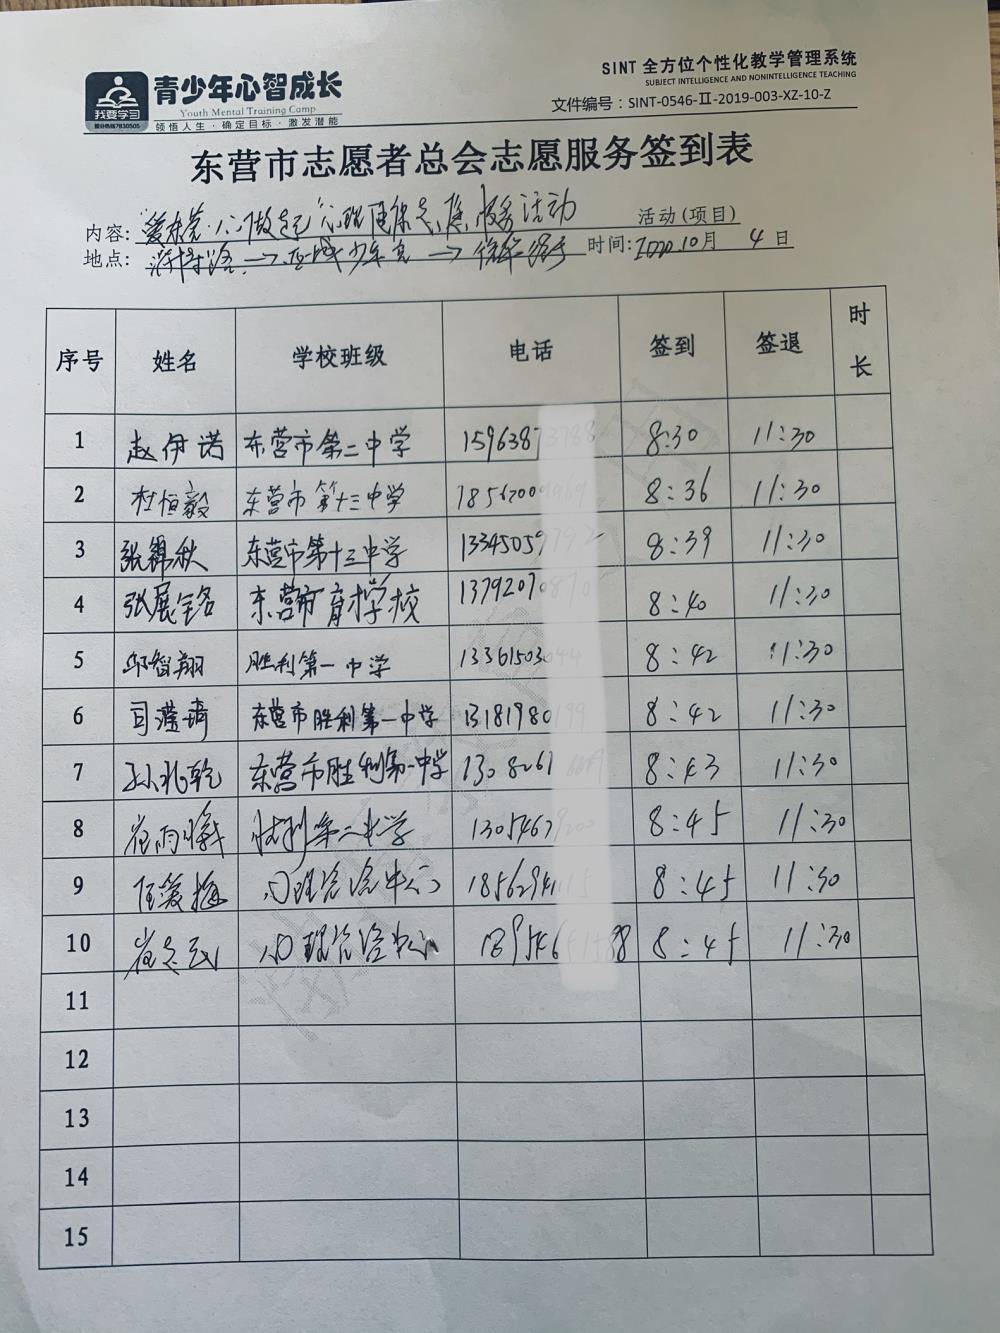 我要学习
青少年心智成长
Youth Mental Training Camp
领悟人生·确定目标·激发潜能
SINT 全方位个性化教学管理系统
SUBJECT INTELLIGENCE AND NONINTELLIGENCE TEACHING
文件编号：SINT-0546-Ⅱ-2019-003-XZ-10-Z
东营市志愿者总会志愿服务签到表
内容: 服务活动 活动(项目)
地点: 少年宫 时间: 10月 4日
序号 姓名 学校班级 电话 签到 签退 时长
1 赵伊诺 东营市第二中学 1596387 8:30 11:30
2 杜恒毅 东营市第十三中学 18562009 8:36 11:30
3 张锦秋 东营市第十三中学 13345059 8:39 11:30
4 张展铭 东营市育才学校 1379207 8:40 11:30
5 邱智翔 胜利第一中学 13361503 8:42 11:30
6 司滢琦 东营市胜利第一中学 13181980 8:42 11:30
7 孙兆乾 东营市胜利第一中学 1308261 8:43 11:30
8 崔雨 胜利第二中学 1305467 8:45 11:30
9 任爱梅 心理 中心 1856294 8:45 11:30
10 崔 心理 中心 8:45 11:30
11
12
13
14
15